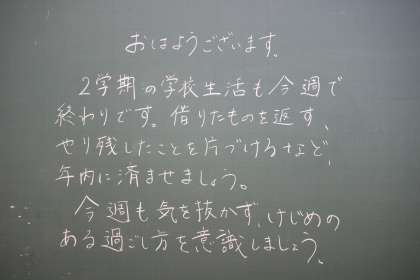 おはようございます。
2学期の学校生活も今週で
終わりです。借りたものを返す、
やり残したことを片づけるなど、
年内に済ませましょう。
今週も気を抜かず、けじめの
ある過ごし方を意識しましょう。